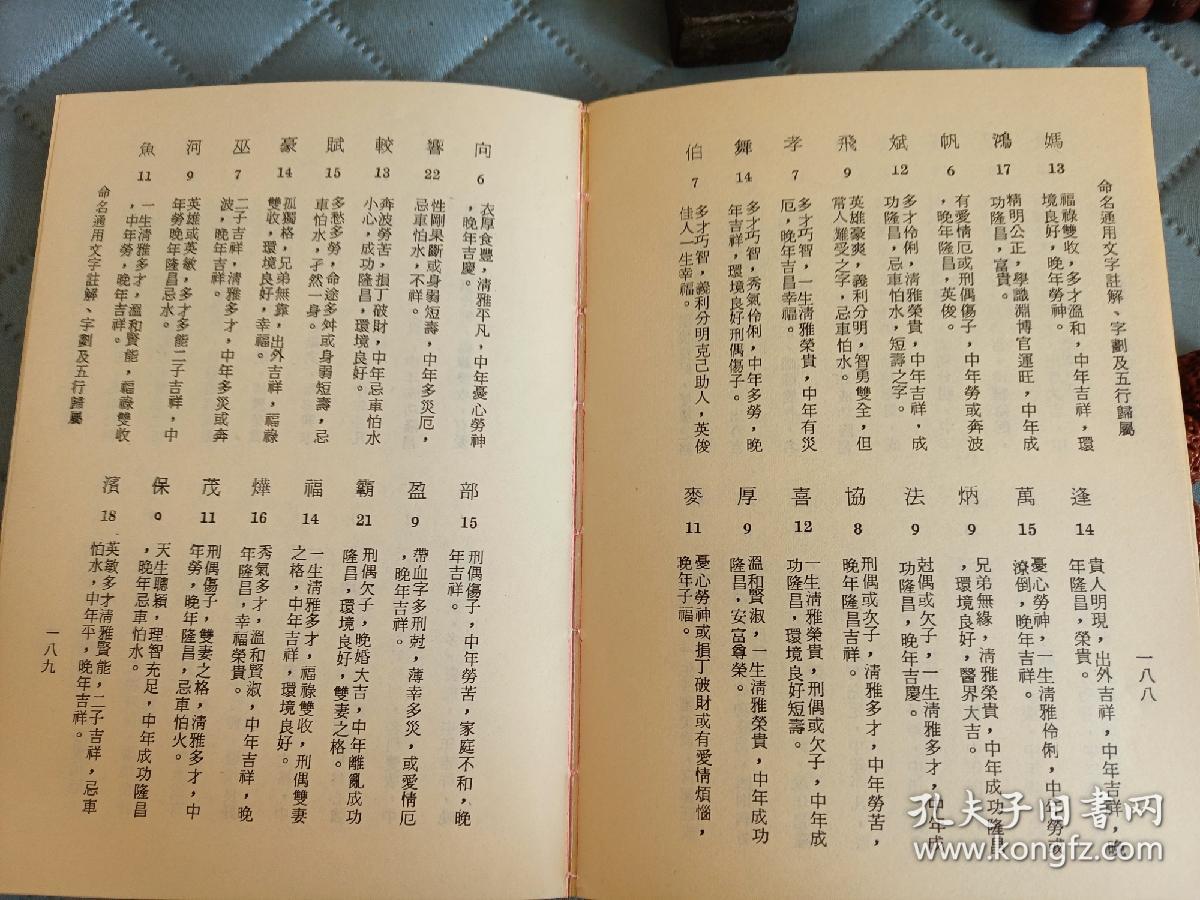 命名通用文字註解、字劃及五行歸屬
媽
13
福祿雙收，多才溫和，中年吉祥，環
境良好，晚年勞神。
鴻
17
精明公正，學識淵博官運旺，中年成
功隆昌，富貴。
帆
6
有愛情厄或刑偶傷子，中年勞或奔波
，晚年隆昌，英俊。
斌
12
多才伶俐，清雅榮貴，中年吉祥，成
功隆昌，忌車怕水，短壽之字。
飛
9
英雄豪爽，義利分明，智勇雙全，但
常人難受之字，忌車怕水。
孝
7
多才巧智，一生清雅榮貴，中年有災
厄，晚年吉昌幸福。
舞
14
多才巧智，秀氣伶俐，中年多勞，晚
年吉祥，環境良好刑偶傷子。
伯
7
多才巧智，義利分明克己助人，英俊
佳人一生幸福。
逢
14
貴人明現，出外吉祥，中年吉祥，晚
年隆昌，榮貴。
萬
15
憂心勞神，一生清雅伶俐，中年勞或
潦倒，晚年吉祥。
炳
9
兄弟無緣，清雅榮貴，中年成功隆昌
，環境良好，醫界大吉。
法
9
尅偶或欠子，一生清雅多才，中年成
功隆昌，晚年吉慶。
協
8
刑偶或欠子，清雅多才，中年勞苦，
晚年隆昌吉祥。
喜
12
一生清雅榮貴，刑偶或欠子，中年成
功隆昌，環境良好短壽。
厚
9
溫和賢淑，一生清雅榮貴，中年成功
隆昌，安富尊榮。
麥
11
憂心勞神或損丁破財或有愛情煩惱，
晚年子福。
一八八
向
6
衣厚食豐，清雅平凡，中年憂心勞神
，晚年吉慶。
響
22
性剛果斷或身弱短壽，中年多災厄，
忌車怕水，不祥。
較
13
奔波勞苦，損丁破財，中年忌車怕水
小心，成功隆昌，環境良好。
賦
15
多愁多勞，命途多舛或身弱短壽，忌
車怕水，孑然一身。
豪
14
孤獨格，兄弟無靠，出外吉祥，福祿
雙收，環境良好，幸福。
巫
7
二子吉祥，清雅多才，中年多災或奔
波，晚年吉祥。
河
9
英雄或英敏，多才多能二子吉祥，中
年勞晚年隆昌忌水。
魚
11
一生清雅多才，溫和賢能，福祿雙收
，中年勞，晚年吉祥。
命名通用文字註解、字劃及五行歸屬
部
15
刑偶傷子，中年勞苦，家庭不和，晚
年吉祥。
盈
9
帶血字多刑尅，薄幸多災，或愛情厄
，晚年吉祥。
霸
21
刑偶欠子，晚婚大吉，中年離亂成功
隆昌，環境良好，雙妻之格。
福
14
一生清雅多才，福祿雙收，刑偶雙妻
之格，中年吉祥，環境良好。
燁
16
秀氣多才，溫和賢淑，中年吉祥，晚
年隆昌，幸福榮貴。
茂
11
刑偶傷子，雙妻之格，清雅多才，中
年勞，晚年隆昌，忌車怕火。
保
9
天生聰穎，理智充足，中年成功隆昌
，晚年忌車怕水。
濱
18
英敏多才清雅賢能，二子吉祥，忌車
怕水，中年平，晚年吉祥。
一八九
孔夫子旧书网
www.kongfz.com